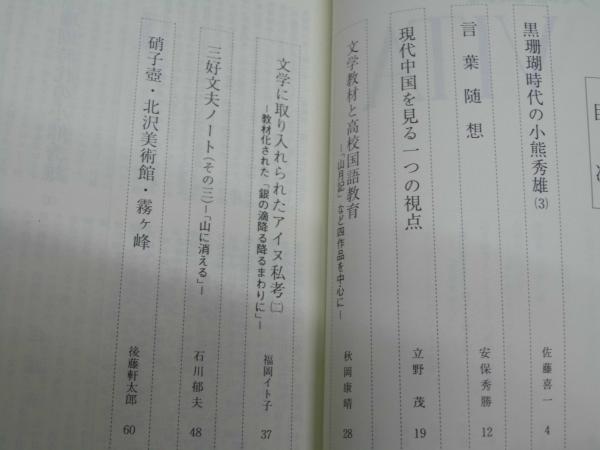 目次
黒珊瑚時代の小熊秀雄(3)
佐藤喜一
4
言葉随想
安保秀勝
12
現代中国を見る一つの視点
立野茂
19
文学教材と高校国語教育
―「山月記」など四作品を中心に―
秋岡康晴
28
文学に取り入れられたアイヌ私考(二)
―教材化された「銀の滴降る降るまわりに」―
福岡イト子
37
三好文夫ノート(その三)―「山に消える」―
石川郁夫
48
硝子壺・北沢美術館・霧ヶ峰
後藤軒太郎
60